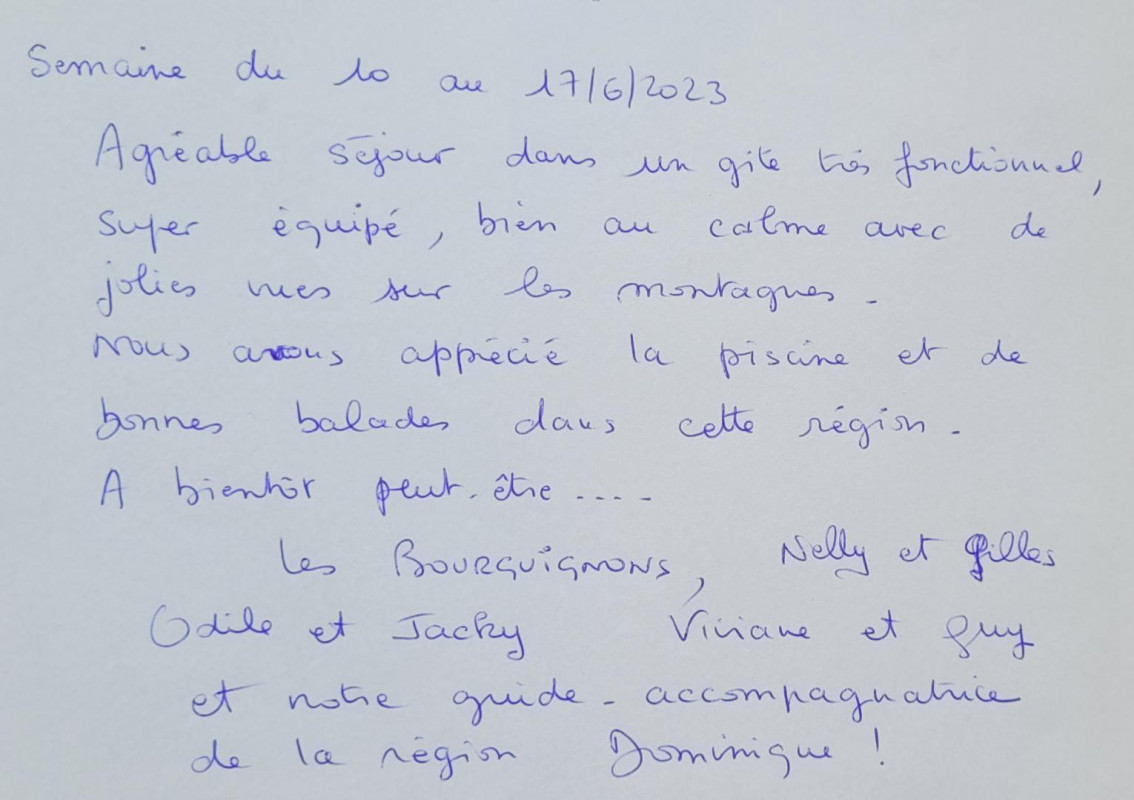 Semaine du 10 au 17/6/2023
Agréable séjour dans un gite très fonctionnel,
super équipé, bien au calme avec de
jolies vues sur les montagnes.
Nous avons apprécié la piscine et de
bonnes balades dans cette région.
A bientôt peut-être ....
Les BOURGUIGNONS, Nelly et Gilles
Odile et Jacky Viviane et Guy
et notre guide-accompagnatrice
de la région Dominique !